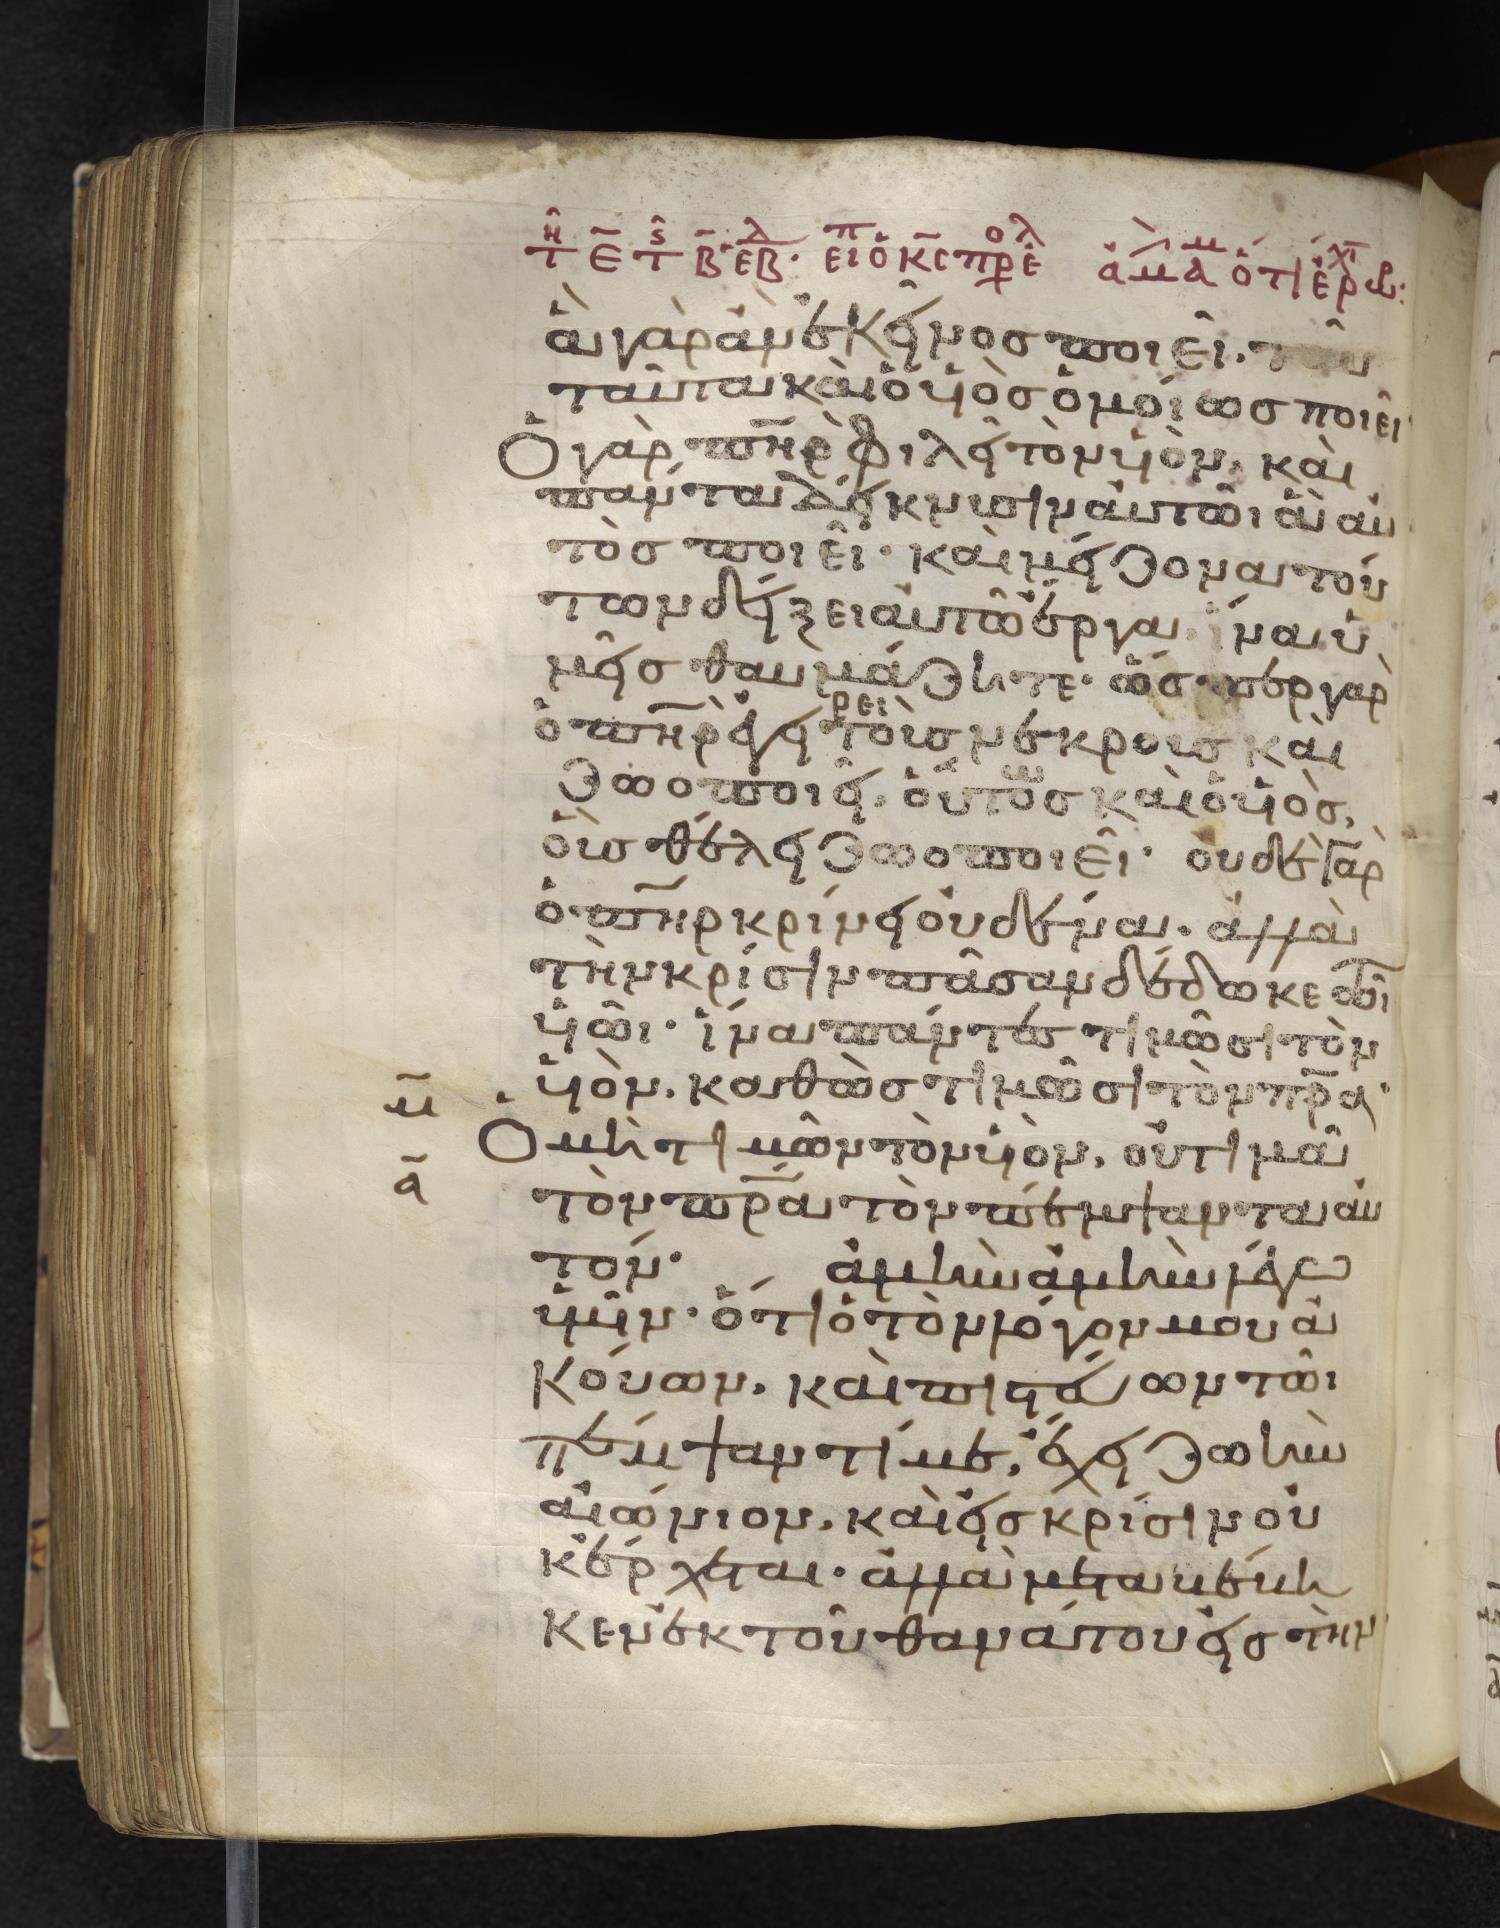 ἃ γὰρ ἂν ἐκεῖνος ποιεῖ.
ταῦτα καὶ ὁ υἱὸς ὁμοίως ποιεῖ
Ὁ γὰρ πηρ φιλεῖ τὸν υἱὸν, καὶ
πάντα δείκνυσιν αὐτῶι ἃ αὐ
τὸς ποιεῖ· καὶ μείζονα τού
των δείξει αὐτῶ ἔργα. ἵνα ὑ
μεῖς θαυμάζητε· ὥσπερ γὰρ
ὁ πηρ ἐγείρει τοὺς νεκροὺς καὶ
ζωοποιεῖ. οὕτως καὶ ὁ υἱὸς,
οὓς θέλει ζωοποιεῖ· οὐδὲ γὰρ
ὁ πηρ κρίνει οὐδένα· ἀλλὰ
τὴν κρίσιν πᾶσαν δέδωκε τῶι
υἱῶι· ἵνα πάντες τιμῶσι τὸν
υἱὸν. καθὼς τιμῶσι τὸν πρα·
Ὁ μὴ τιμῶν τὸν υἱὸν, οὐ τιμᾶ
τὸν πρα τὸν πέμψαντα αὐ
τόν· ἀμὴν ἀμὴν λέγω
ὑμῖν· ὅτι ὁ τὸν λόγον μου ἀ
κούων, καὶ πιστεύων τῶι
πέμψαντί με, ἔχει ζωὴν
αἰώνιον, καὶ εἰς κρίσιν οὐ
κ ἔρχεται· ἀλλὰ μεταβέβη
κεν ἐκ τοῦ θανάτου εἰς τὴν